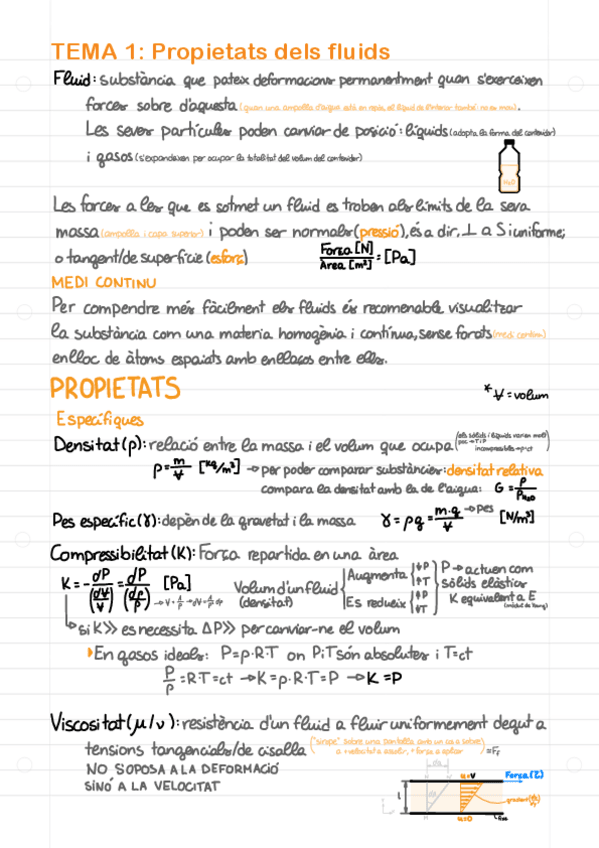 TEMA 1: Propietats dels fluids
Fluid: substància que pateix deformacions permanentment quan s'exerceixen
forces sobre d'aquesta (quan una ampolla d'aigua està en repòs, el líquid de l'interior també: no es mou).
Les seves partícules poden canviar de posició: líquids (adopta la forma del contenidor)
i gasos (s'expandeixen per ocupar la totalitat del volum del contenidor)
H₂O
Les forces a les que es sotmet un fluid es troben als límits de la seva
massa (ampolla i capa superior) i poden ser normals (pressió), és a dir, ⊥ a S i uniforme;
o tangent/de superfície (esforç) Força [N] / Àrea [m²] = [Pa]
MEDI CONTINU
Per compendre més fàcilment els fluids és recomenable visualitzar
la substància com una materia homogènia i contínua, sense forats (medi continu)
enlloc de àtoms espaiats amb enllaços entre elles.
PROPIETATS
* V = volum
Específiques
Densitat (ρ): relació entre la massa i el volum que ocupa (els sòlids i líquids varien molt
poc → T i P
incompressibles → ρ=ct)
ρ = m/V [kg/m³] → per poder comparar substàncies: densitat relativa
compara la densitat amb la de l'aigua: G = ρ/ρH₂O
Pes específic (γ): depèn de la gravetat i la massa γ = ρg = m·g/V → pes [N/m³]
Compressibilitat (K): Força repartida en una àrea
K = - dP/(dV/V) = dP/(dρ/ρ) [Pa]
Volum d'un fluid (densitat)
Augmenta ↓P ↑T
Es redueix ↑P ↓T
P → actuen com
sòlids elàstics
K equivalent a E
(mòdul de Young)
si K>> es necessita ΔP>> per canviar-ne el volum
En gasos ideals: P = ρ·R·T on P i T són absolutes i T=ct
P/ρ = R·T = ct → K = ρ·R·T = P → K = P
Viscositat (μ/ν): resistència d'un fluid a fluir uniformement degut a
tensions tangencials/de cisalla
= Fr
NO S'OPOSA A LA DEFORMACIÓ
SINÓ A LA VELOCITAT
u=v
Força (τ)
u=0